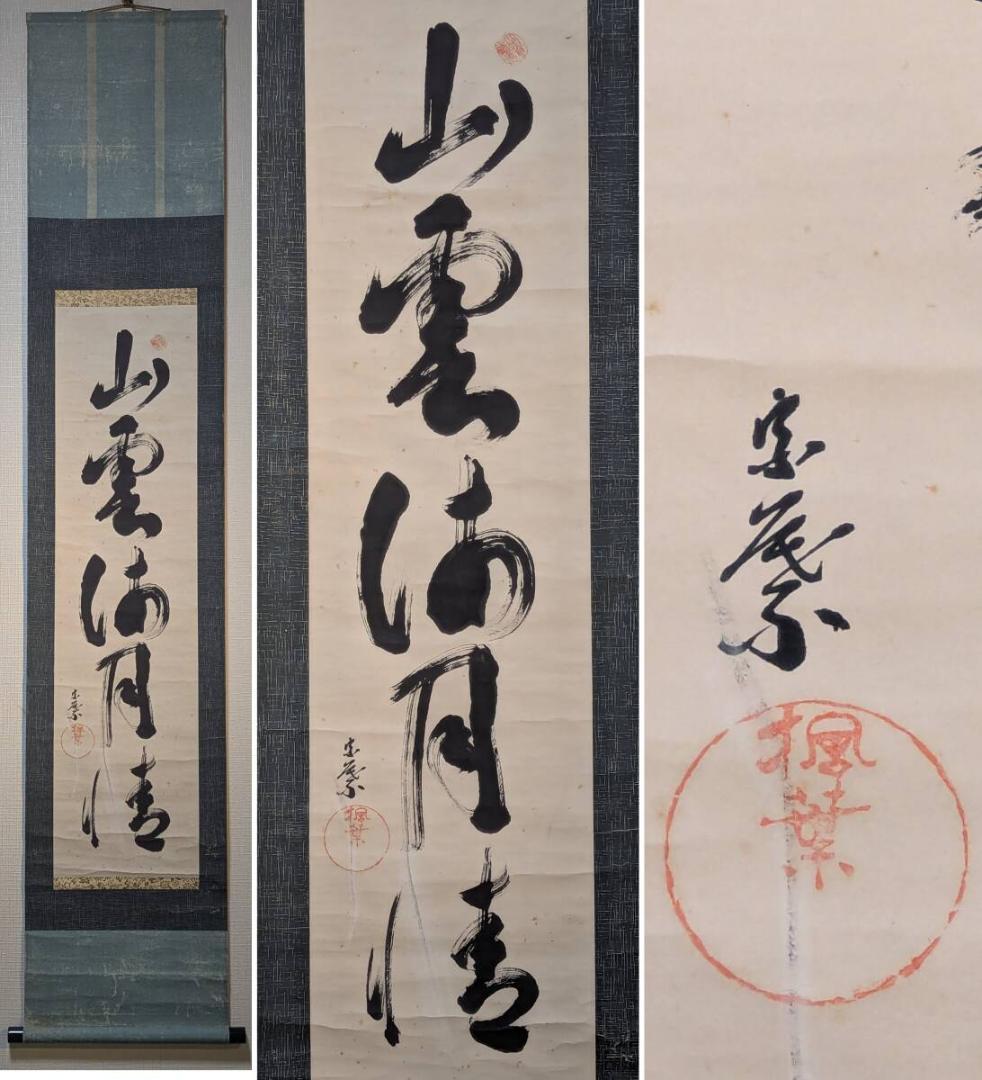 山雲海月情
宗
楓葉